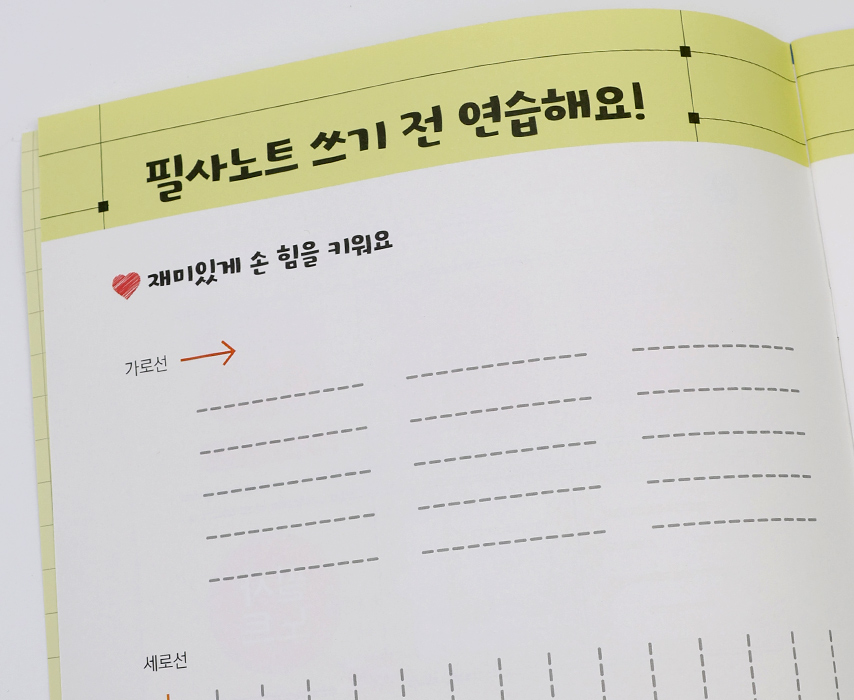 필사노트 쓰기 전 연습해요!
재미있게 손 힘을 키워요
가로선
세로선